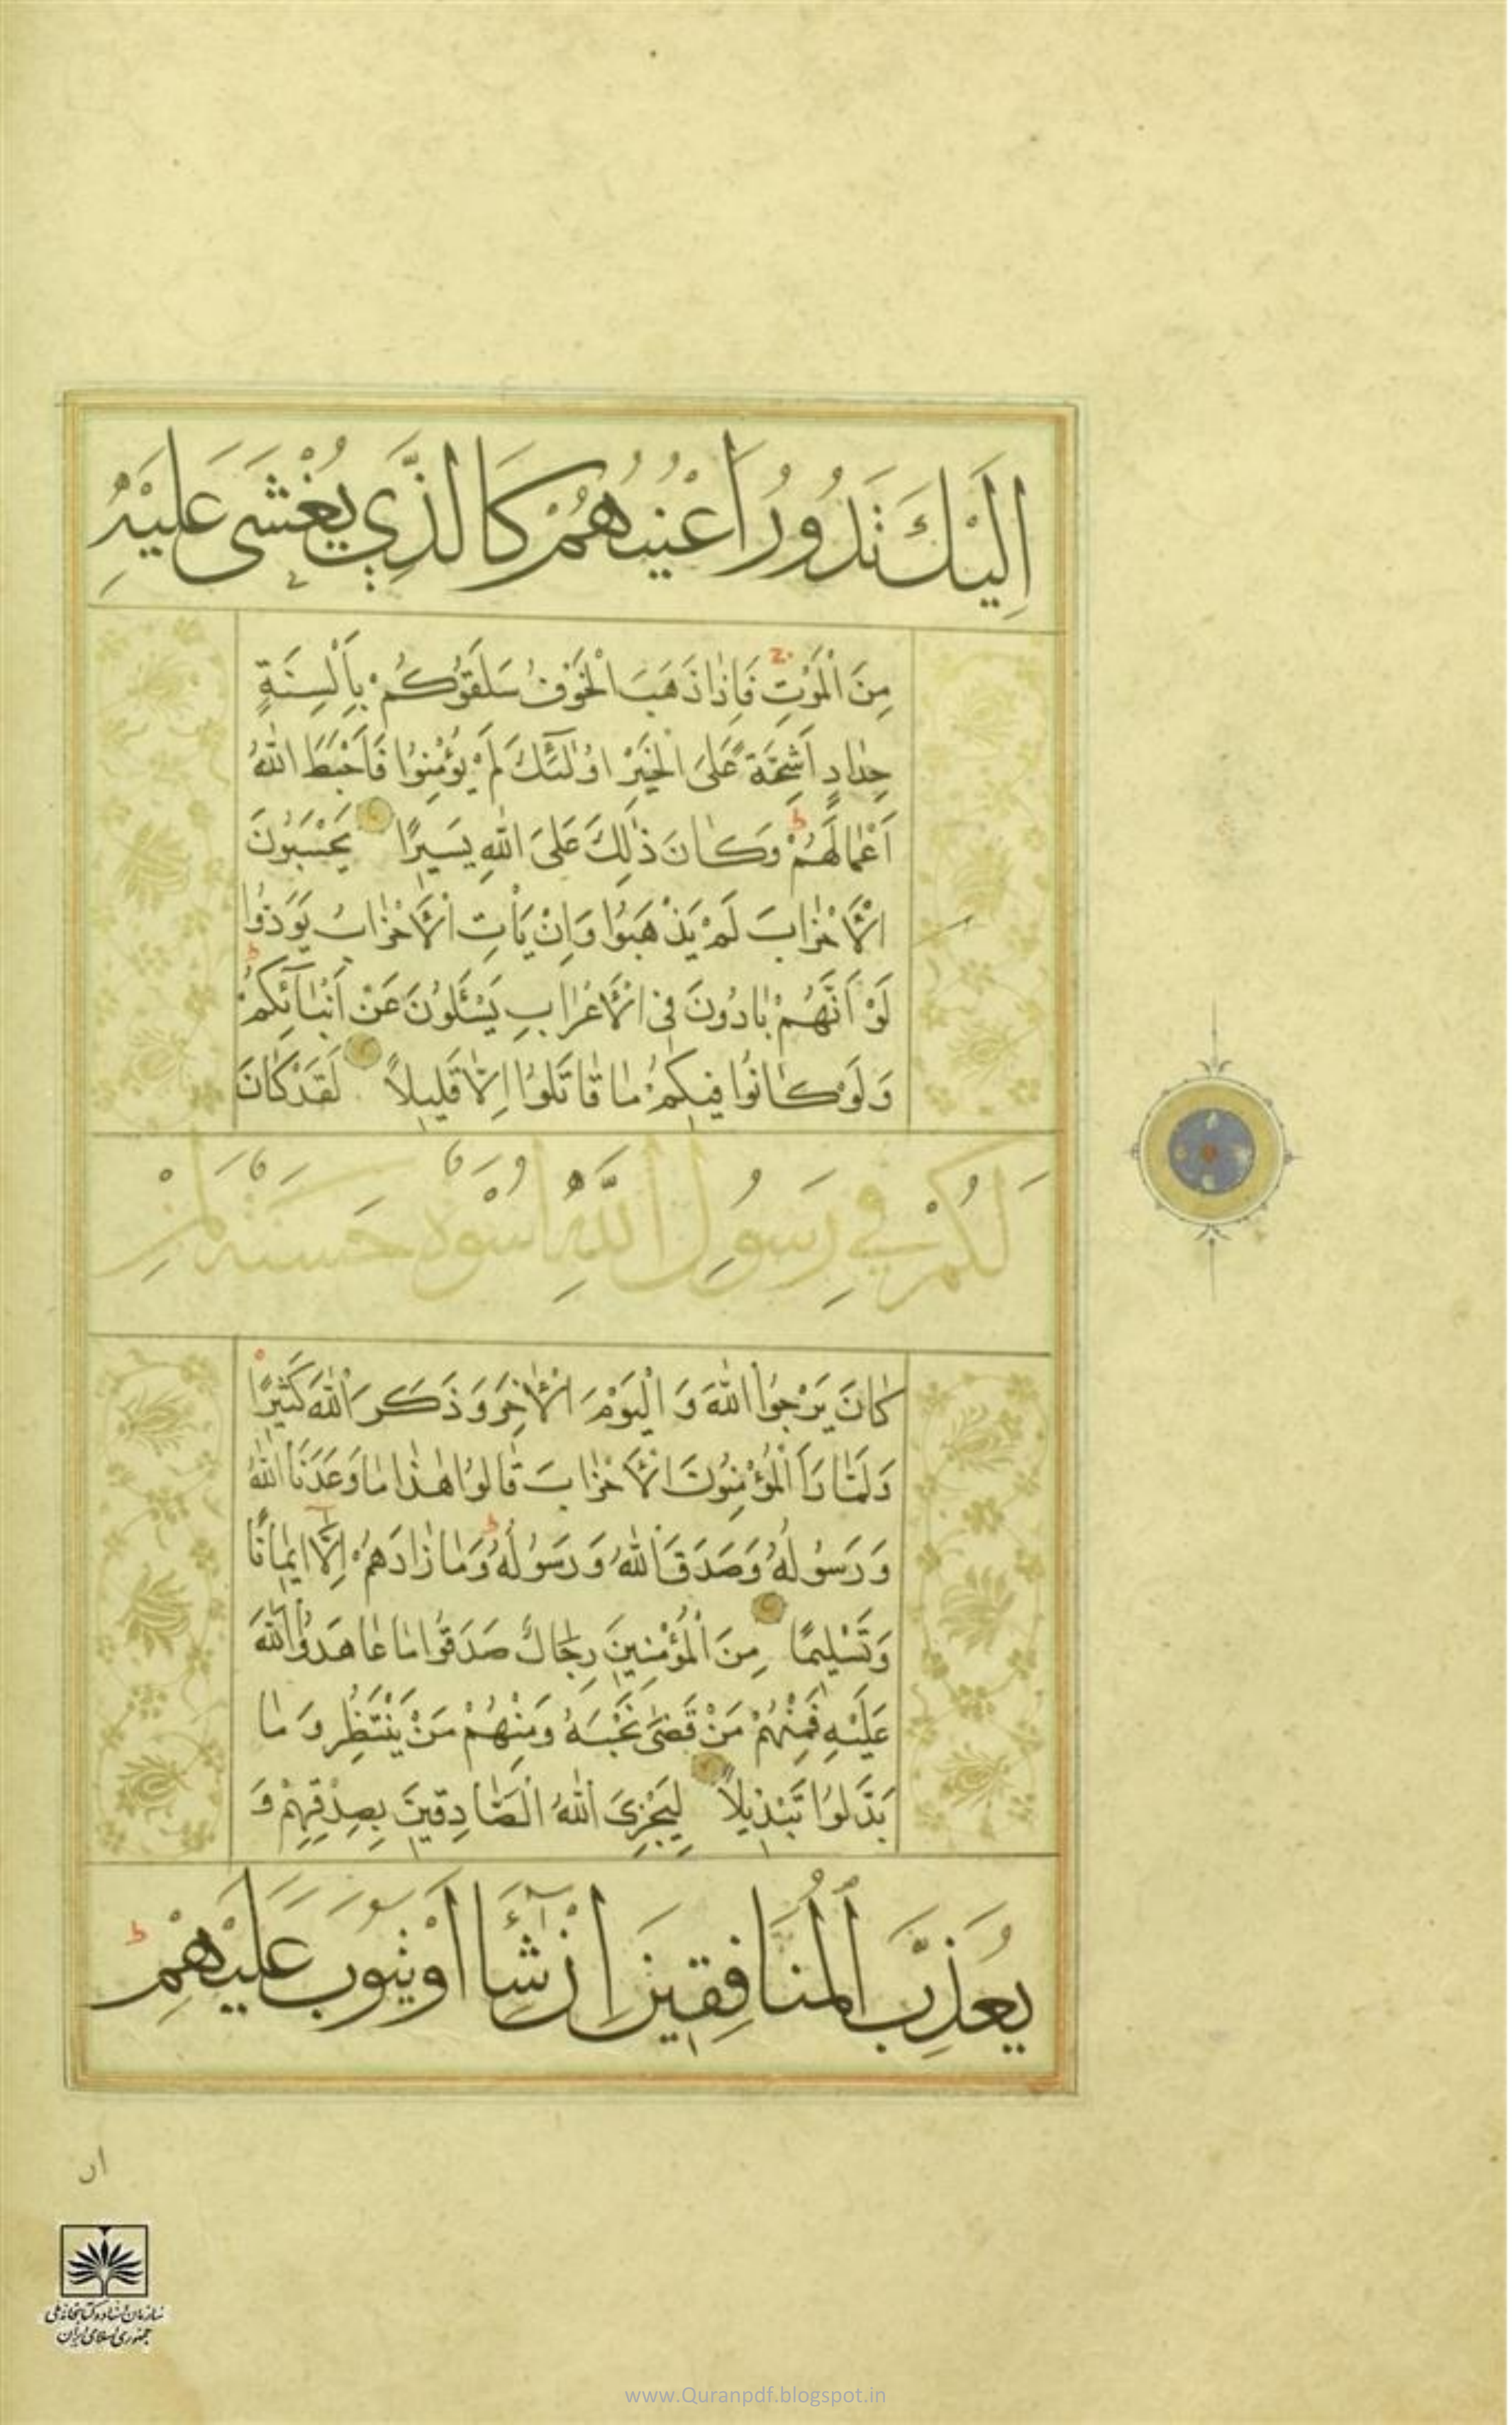 اِلَيْكَ تَدُورُ اَعْيُنُهُمْ كَالَّذِي يُغْشَى عَلَيْهِ
مِنَ الْمَوْتِ فَاِذَا ذَهَبَ الْخَوْفُ سَلَقُوكُمْ بِاَلْسِنَةٍ
حِدَادٍ اَشِحَّةً عَلَى الْخَيْرِ اُولٰئِكَ لَمْ يُؤْمِنُوا فَاَحْبَطَ اللّٰهُ
اَعْمَالَهُمْ وَكَانَ ذٰلِكَ عَلَى اللّٰهِ يَسِيرًا يَحْسَبُونَ
الْاَحْزَابَ لَمْ يَذْهَبُوا وَاِنْ يَأْتِ الْاَحْزَابُ يَوَدُّوا
لَوْ اَنَّهُمْ بَادُونَ فِي الْاَعْرَابِ يَسْئَلُونَ عَنْ اَنْبَآئِكُمْ
وَلَوْ كَانُوا فِيكُمْ مَا قَاتَلُوا اِلَّا قَلِيلًا لَقَدْ كَانَ
لَكُمْ فِي رَسُولِ اللّٰهِ اُسْوَةٌ حَسَنَةٌ لِمَنْ
كَانَ يَرْجُوا اللّٰهَ وَ الْيَوْمَ الْاٰخِرَ وَ ذَكَرَ اللّٰهَ كَثِيرًا
وَلَمَّا رَاَ الْمُؤْمِنُونَ الْاَحْزَابَ قَالُوا هٰذَا مَا وَعَدَنَا اللّٰهُ
وَ رَسُولُهُ وَصَدَقَ اللّٰهُ وَ رَسُولُهُ وَمَا زَادَهُمْ اِلَّا اِيمَانًا
وَتَسْلِيمًا مِنَ الْمُؤْمِنِينَ رِجَالٌ صَدَقُوا مَا عَاهَدُوا اللّٰهَ
عَلَيْهِ فَمِنْهُمْ مَنْ قَضٰى نَحْبَهُ وَمِنْهُمْ مَنْ يَنْتَظِرُ وَ مَا
بَدَّلُوا تَبْدِيلًا لِيَجْزِيَ اللّٰهُ الصَّادِقِينَ بِصِدْقِهِمْ وَ
يُعَذِّبَ الْمُنَافِقِينَ اِنْ شَآءَ اَوْ يَتُوبَ عَلَيْهِمْ
ان
سازمان اسناد و کتابخانه ملی
جمهوری اسلامی ایران
www.Quranpdf.blogspot.in